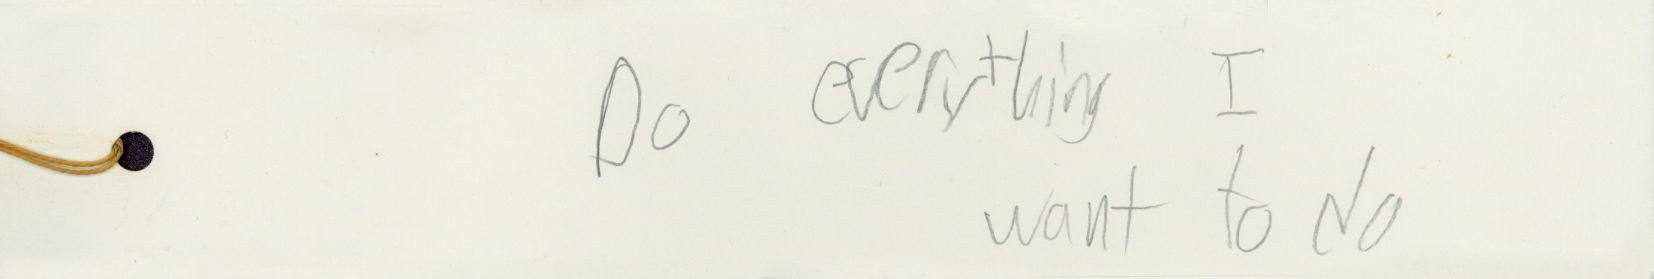 Do everything I
want to do